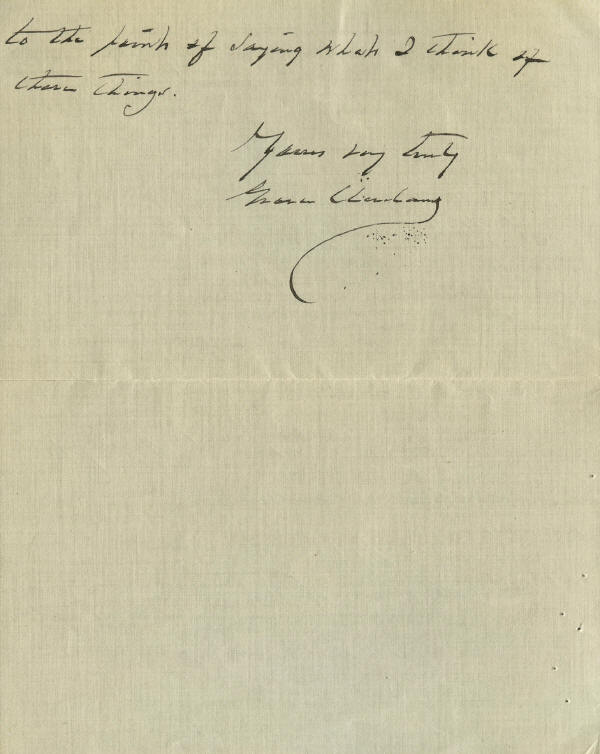 to the point of saying what I think of
these things.
Yours very truly
Grover Cleveland